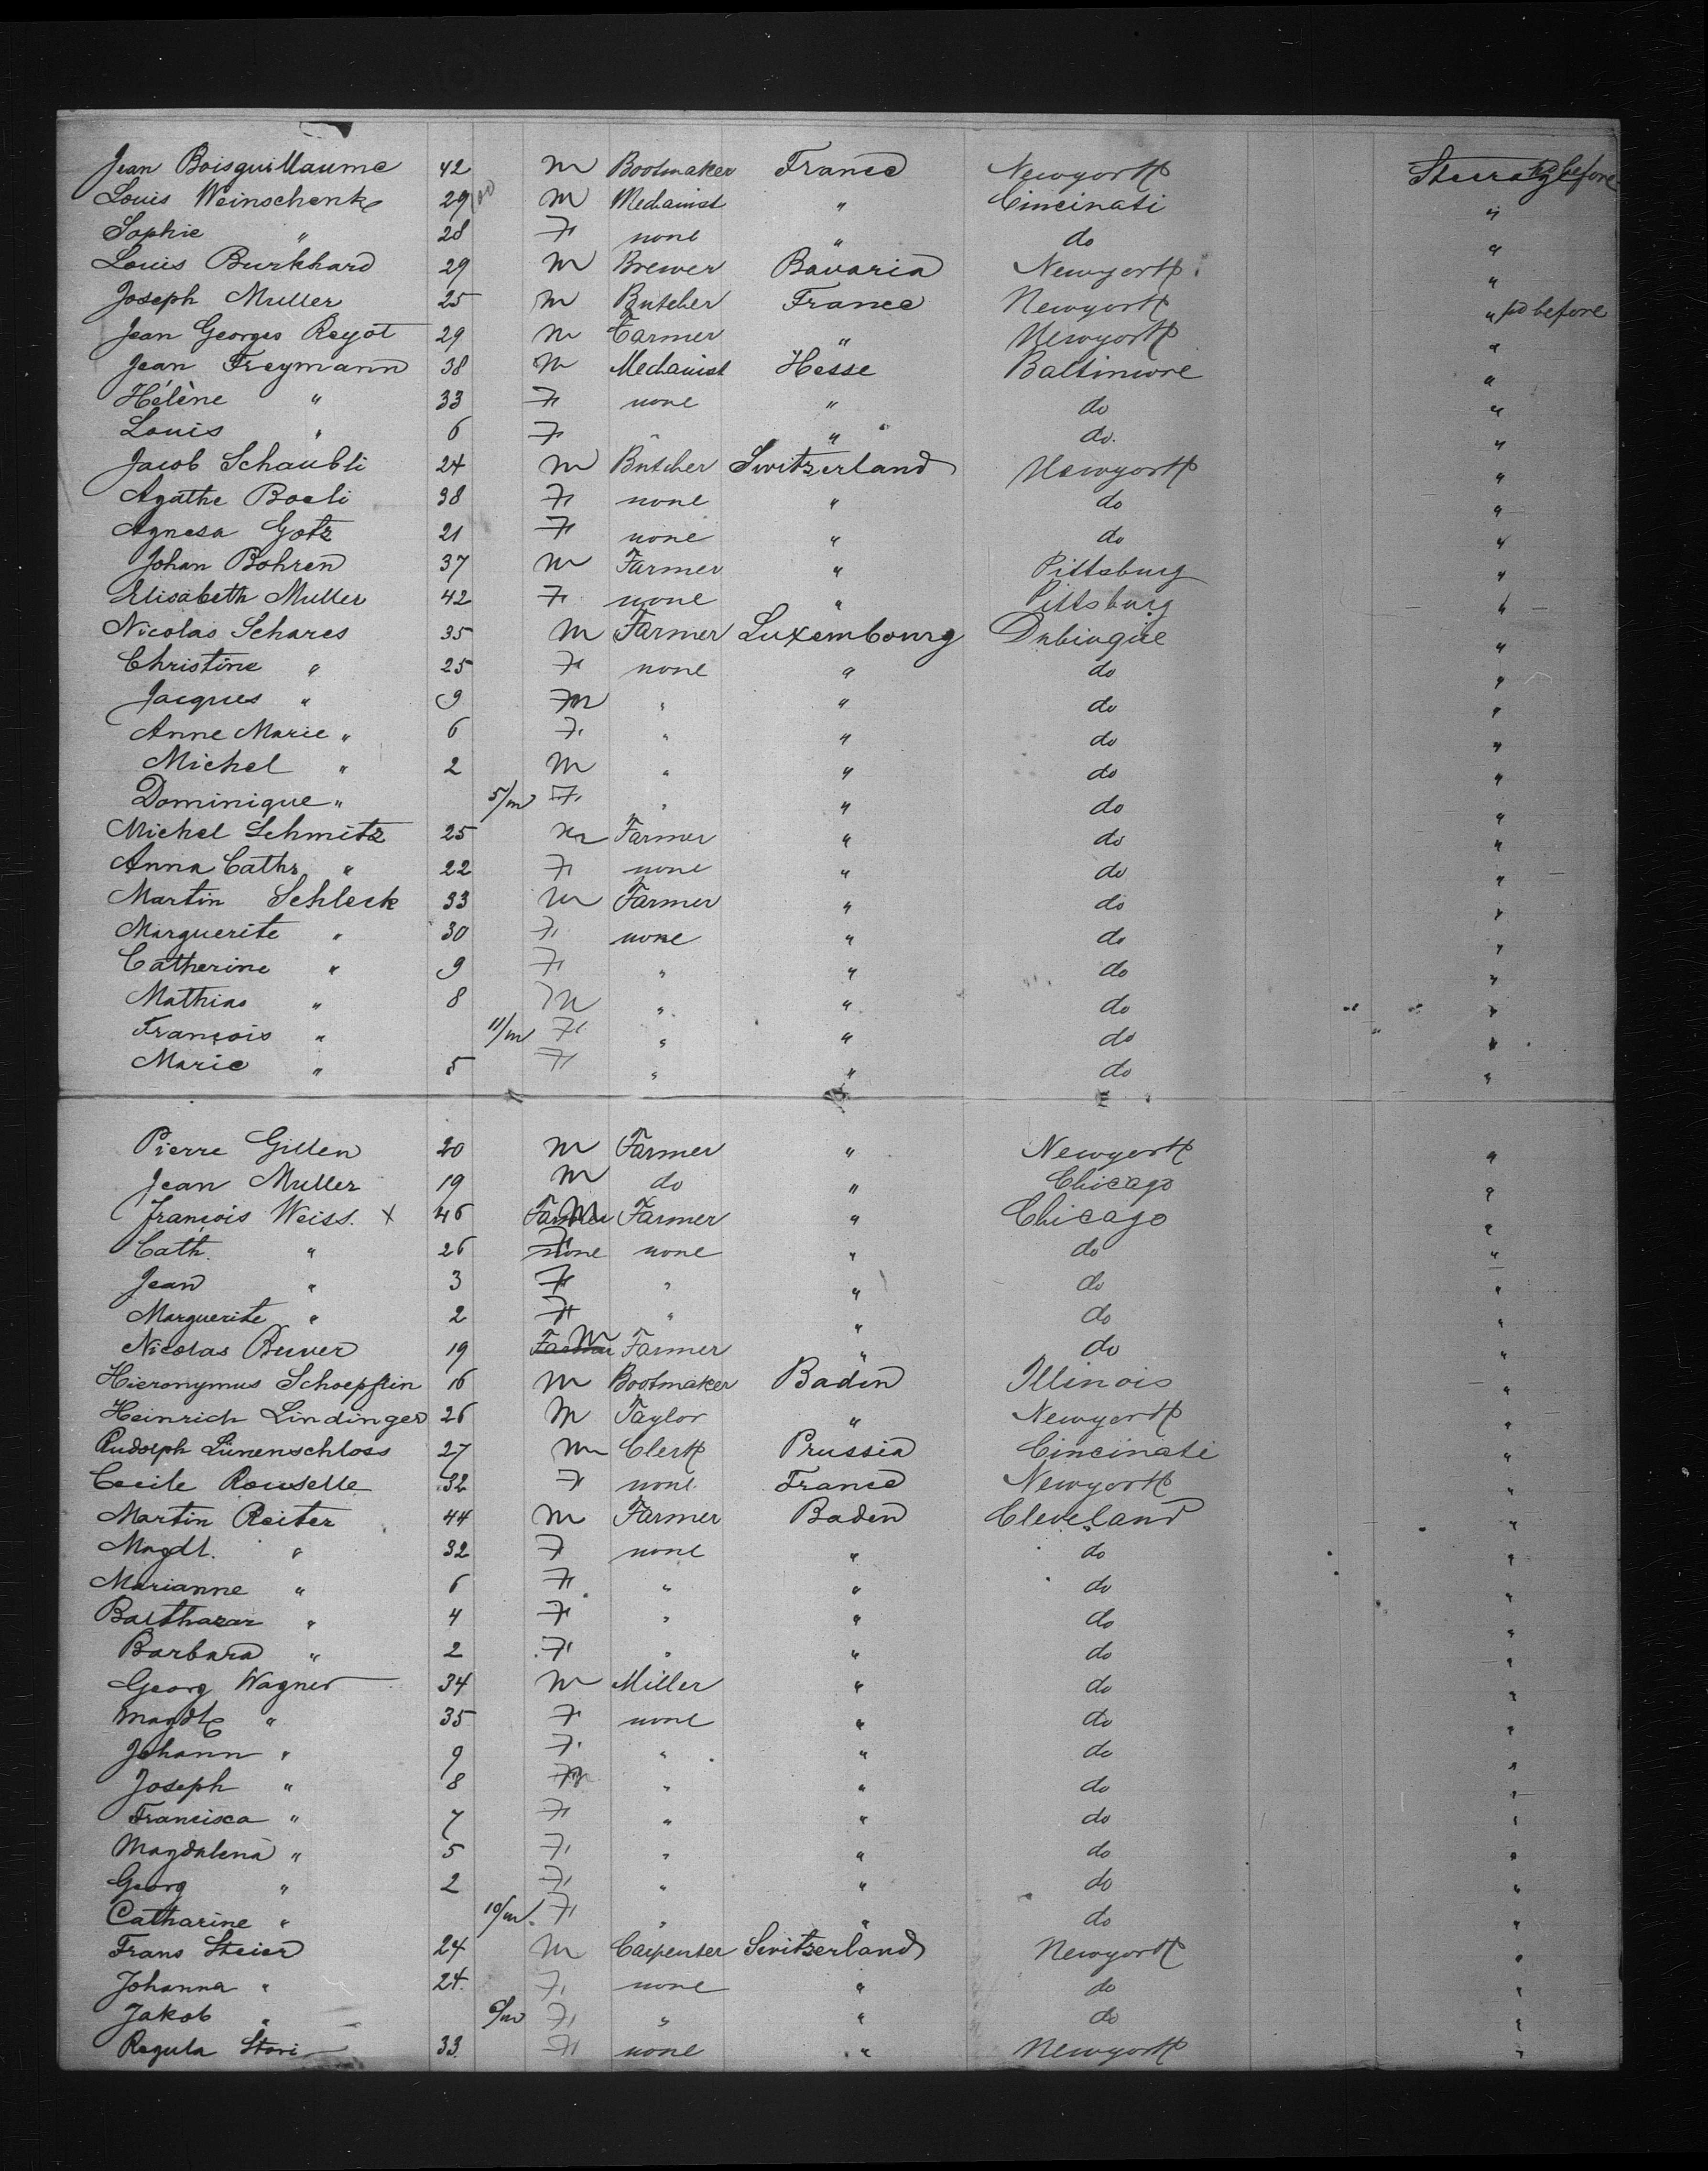 Jean Boisguillaume 42 m Bootmaker France Newyork Steerage pd before
Louis Weinschenk 29 m Mechanist " Cincinati "
Sophie " 28 F none " do "
Louis Burkhard 29 m Brewer Bavaria Newyork "
Joseph Muller 25 m Butcher France Newyork " pd before
Jean Georges Reyot 29 m Farmer " Newyork "
Jean Freymann 38 m Mechanist Hesse Baltimore "
Hélène " 33 F none " do "
Louis " 6 F " " do. "
Jacob Schaubli 24 m Butcher Switzerland Newyork "
Agathe Boeli 38 F none " do "
Agnesa Gotz 21 F none " do "
Johan Bohren 37 m Farmer " Pittsburg "
Elisabeth Muller 42 F none " Pittsburg "
Nicolas Schares 35 m Farmer Luxembourg Dubuque "
Christine " 25 F none " do "
Jacques " 9 m " " do "
Anne Marie " 6 F " " do "
Michel " 2 m " " do "
Dominique " 5/m F " " do "
Michel Schmitz 25 m Farmer " do "
Anna Cath. " 22 F none " do "
Martin Schleck 33 m Farmer " do "
Marguerite " 30 F none " do "
Catherine " 9 F " " do "
Mathias " 8 m " " do "
François " 11/m F " " do "
Marie " 5 F " " do "
Pierre Gillen 20 m Farmer " Newyork "
Jean Muller 19 m do " Chicago "
François Weiss. x 46 m Farmer " Chicago "
Cath. " 26 F none " do "
Jean " 3 F " " do "
Marguerite " 2 F " " do "
Nicolas Buver 19 m Farmer " do "
Hieronymus Schoepflin 16 m Bootmaker Baden Illinois "
Heinrich Lindinger 26 m Taylor " Newyork "
Rudolph Lünenschloss 27 m Clerk Prussia Cincinati "
Cecile Rouselle 32 F none France Newyork "
Martin Reiter 44 m Farmer Baden Cleveland "
Magdl. " 32 F none " do "
Marianne " 6 F " " do "
Balthazar " 4 F " " do "
Barbara " 2 F " " do "
Georg Wagner 34 m Miller " do "
Magdl " 35 F none " do "
Johann " 9 F " " do "
Joseph " 8 m " " do "
Francisca " 7 F " " do "
Magdalena " 5 F " " do "
Georg " 2 F " " do "
Catharine " 10/m F " " do "
Frans Steier 24 m Carpenter Switzerland Newyork "
Johanna " 24 F none " do "
Jakob " 6/m F " " do "
Regula Stori 33 F none " Newyork "